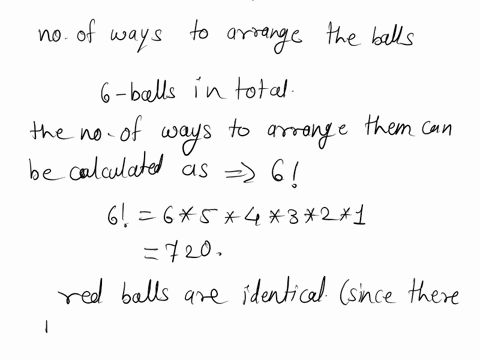 no. of ways to arrange the balls
6-balls in total.
the no. of ways to arrange them can
be calculated as => 6!
6! = 6*5*4*3*2*1
= 720.
red balls are identical (since there